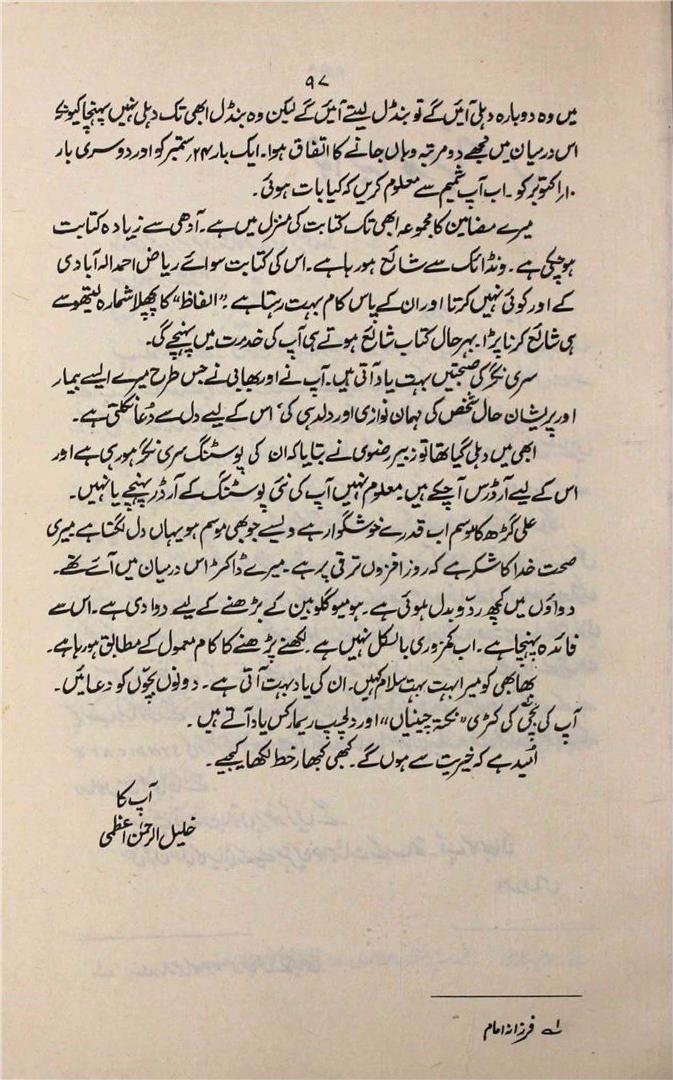 ۹۷
میں وہ دوبارہ دہلی آئیں گے تو بنڈل لیتے آئیں گے لیکن وہ بنڈل ابھی تک دہلی نہیں پہنچا کیونکہ
اس درمیان میں مجھے دو مرتبہ وہاں جانے کا اتفاق ہوا۔ ایک بار ۲۴ ستمبر کو اور دوسری بار
۱۰ اکتوبر کو۔ اب آپ شمیم سے معلوم کریں کہ کیا بات ہوئی۔
میرے مضامین کا مجموعہ ابھی تک کتابت کی منزل میں ہے۔ آدھی سے زیادہ کتابت
ہو چکی ہے۔ ونڈائک سے شائع ہو رہا ہے۔ اس کی کتابت سوائے ریاض احمد الہ آبادی
کے اور کوئی نہیں کرتا اور ان کے پاس کام بہت رہتا ہے۔ "الفاظ" کا پچھلا شمارہ لیتھو سے
ہی شائع کرنا پڑا۔ بہرحال کتاب شائع ہوتے ہی آپ کی خدمت میں پہنچے گی۔
سری نگر کی صحبتیں بہت یاد آتی ہیں۔ آپ نے اور بھابی نے جس طرح میرے ایسے بیمار
اور پریشان حال شخص کی مہمان نوازی اور دلدہی کی، اس کے لیے دل سے دُعا نکلتی ہے۔
ابھی میں دہلی گیا تھا تو زبیر رضوی نے بتایا کہ ان کی پوسٹنگ سری نگر ہو رہی ہے اور
اس کے لیے آرڈرس آ چکے ہیں۔ معلوم نہیں آپ کی نئی پوسٹنگ کے آرڈر پہنچے یا نہیں۔
علی گڑھ کا موسم اب قدرے خوشگوار ہے ویسے جو بھی موسم ہو یہاں دل لگتا ہے۔ میری
صحت خدا کا شکر ہے کہ روز افزوں ترقی پر ہے۔ میرے ڈاکٹر اس درمیان میں آئے تھے۔
دواؤں میں کچھ ردّ و بدل ہوئی ہے۔ ہوموگلوبین کے بڑھنے کے لیے دوا دی ہے۔ اس سے
فائدہ پہنچا ہے۔ اب کمزوری بالکل نہیں ہے۔ لکھنے پڑھنے کا کام معمول کے مطابق ہو رہا ہے۔
بھابھی کو میرا بہت بہت سلام کہیں۔ ان کی یاد بہت آتی ہے۔ دونوں بچّوں کو دعائیں۔
آپ کی بچّی کی کمڑی "نکتہ چینیاں" اور دلچسپ ریمارکس یاد آتے ہیں۔
اُمید ہے کہ خیریت سے ہوں گے۔ کبھی کبھار خط لکھا کیجیے۔
آپ کا
خلیل الرحمٰن اعظمی
لہ فرزانہ امام